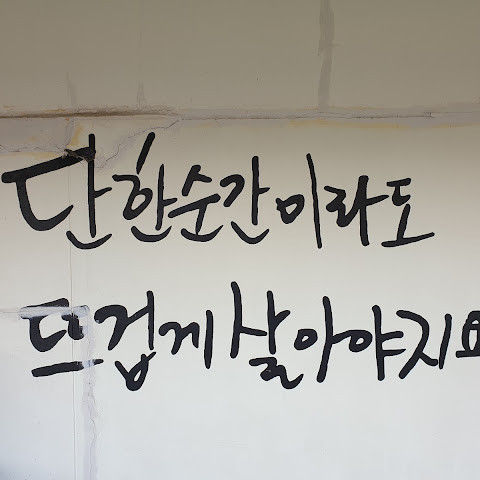 단 한순간이라도
뜨겁게 살아야지요